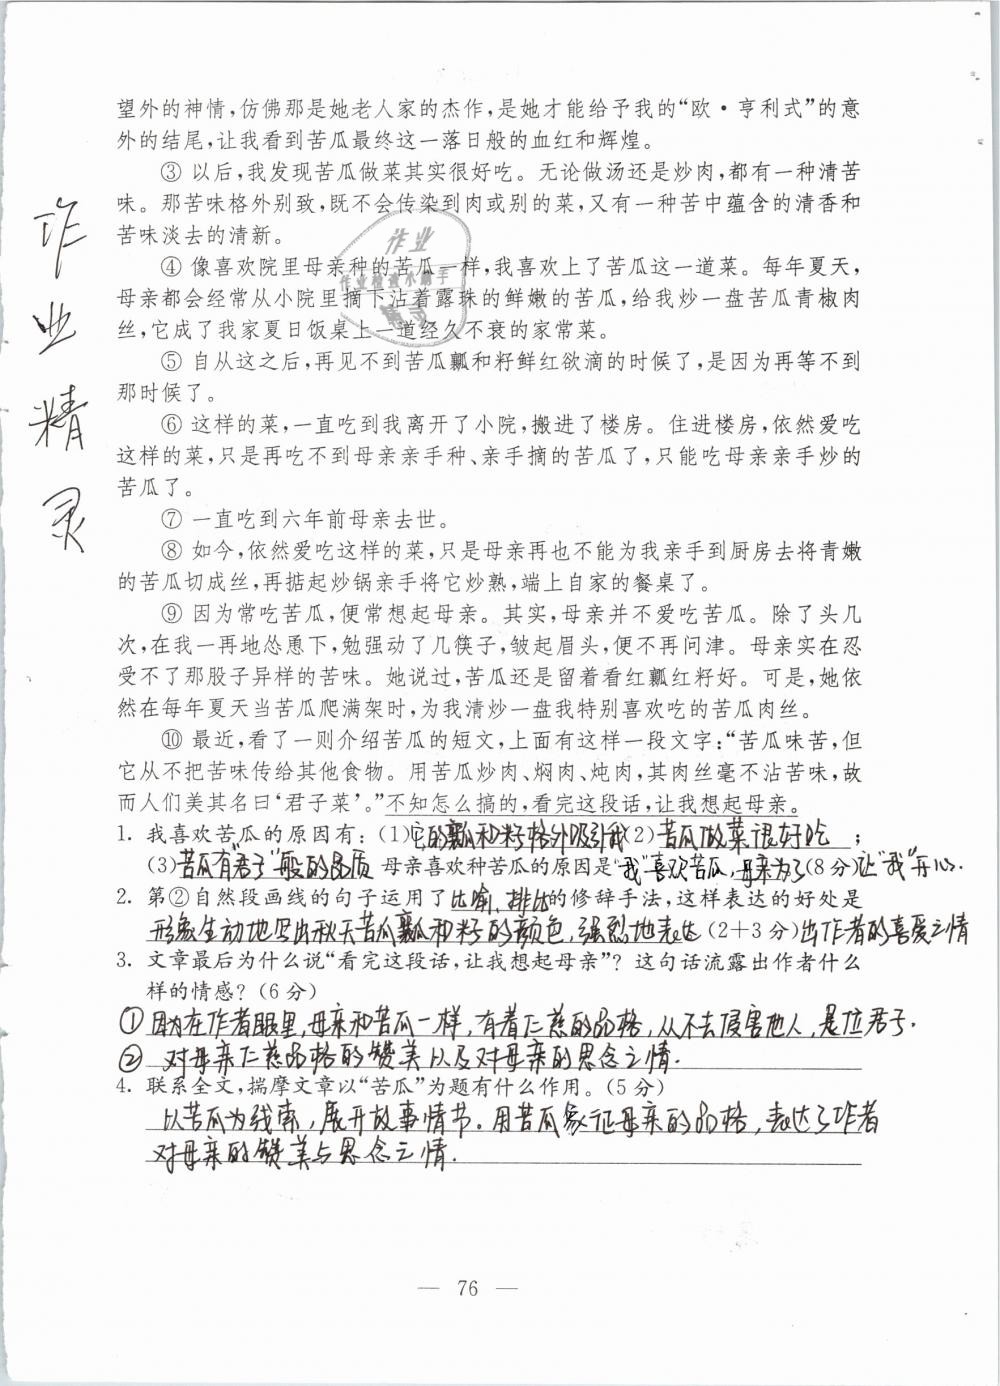 望外的神情,仿佛那是她老人家的杰作,是她才能给予我的“欧·亨利式”的意
外的结尾,让我看到苦瓜最终这一落日般的血红和辉煌。
③ 以后,我发现苦瓜做菜其实很好吃。无论做汤还是炒肉,都有一种清苦
味。那苦味格外别致,既不会传染到肉或别的菜,又有一种苦中蕴含的清香和
苦味淡去的清新。
④ 像喜欢院里母亲种的苦瓜一样,我喜欢上了苦瓜这一道菜。每年夏天,
母亲都会经常从小院里摘下沾着露珠的鲜嫩的苦瓜,给我炒一盘苦瓜青椒肉
丝,它成了我家夏日饭桌上一道经久不衰的家常菜。
⑤ 自从这之后,再见不到苦瓜瓤和籽鲜红欲滴的时候了,是因为再等不到
那时候了。
⑥ 这样的菜,一直吃到我离开了小院,搬进了楼房。住进楼房,依然爱吃
这样的菜,只是再吃不到母亲亲手种、亲手摘的苦瓜了,只能吃母亲亲手炒的
苦瓜了。
⑦ 一直吃到六年前母亲去世。
⑧ 如今,依然爱吃这样的菜,只是母亲再也不能为我亲手到厨房去将青嫩
的苦瓜切成丝,再掂起炒锅亲手将它炒熟,端上自家的餐桌了。
⑨ 因为常吃苦瓜,便常想起母亲。其实,母亲并不爱吃苦瓜。除了头几
次,在我一再地怂恿下,勉强动了几筷子,皱起眉头,便不再问津。母亲实在忍
受不了那股子异样的苦味。她说过,苦瓜还是留着看红瓤红籽好。可是,她依
然在每年夏天当苦瓜爬满架时,为我清炒一盘我特别喜欢吃的苦瓜肉丝。
⑩ 最近,看了一则介绍苦瓜的短文,上面有这样一段文字:“苦瓜味苦,但
它从不把苦味传给其他食物。用苦瓜炒肉、焖肉、炖肉,其肉丝毫不沾苦味,故
而人们美其名曰‘君子菜’。”不知怎么搞的,看完这段话,让我想起母亲。
1. 我喜欢苦瓜的原因有:(1)它的瓤和籽格外吸引我(2)苦瓜做菜很好吃;
(3)苦瓜有“君子”般的品质 母亲喜欢种苦瓜的原因是“我”喜欢苦瓜,母亲为了(8分)让“我”开心.
2. 第②自然段画线的句子运用了比喻、排比的修辞手法,这样表达的好处是
形象生动地写出秋天苦瓜瓤和籽的颜色,强烈地表达(2+3分)出作者的喜爱之情
3. 文章最后为什么说“看完这段话,让我想起母亲”?这句话流露出作者什么
样的情感?(6分)
①因为在作者眼里,母亲和苦瓜一样,有着仁慈的品格,从不去侵害他人,是位君子.
② 对母亲仁慈品格的赞美以及对母亲的思念之情.
4. 联系全文,揣摩文章以“苦瓜”为题有什么作用。(5分)
以苦瓜为线索,展开故事情节。用苦瓜象征母亲的品格,表达了作者
对母亲的赞美与思念之情.
— 76 —
作业精灵
作业
作业检查小助手
精灵